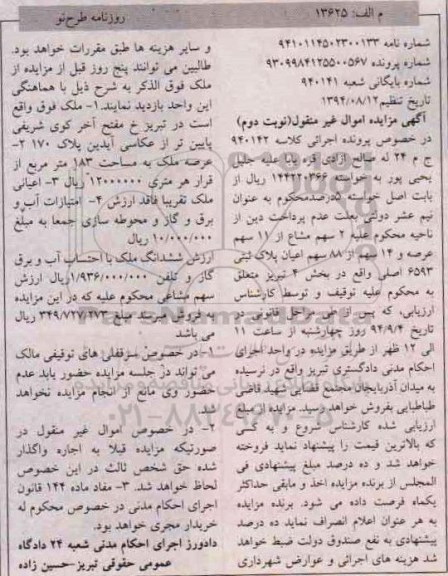 م الف: ۱۳۶۲۵
روزنامه طرح‌نو
شماره نامه ۹۴۱۰۱۱۴۵۰۲۳۰۰۱۳۳
شماره پرونده ۹۳۰۹۹۸۴۱۲۵۵۰۰۵۶۷
شماره بایگانی شعبه ۹۴۰۱۴۱
تاریخ تنظیم ۱۳۹۴/۰۸/۱۲
آگهی مزایده اموال غیر منقول(نوبت دوم)
در خصوص پرونده اجرائی کلاسه ۹۴۰۱۴۲
ج م ۲۴ له صالح آزادی قره بابا علیه جلیل
یحیی پور به خواسته ۱۴۴۲۲۰۳۶۶ ریال از
بابت اصل خواسته درصدمحکوم به عنوان
نیم عشر دولتی بعلت عدم پرداخت دین از
ناحیه محکوم علیه ۲ سهم مشاع از ۱۱ سهم
عرصه و ۱۴ سهم از ۸۸ سهم اعیان پلاک ثبتی
۶۵۹۳ اصلی واقع در بخش ۴ تبریز متعلق
به محکوم علیه توقیف و توسط کارشناس
ارزیابی، که پس از طی مراحل قانونی در
تاریخ ۹۴/۹/۴ روز چهارشنبه از ساعت ۱۰
الی ۱۲ ظهر از طریق مزایده در واحد اجرای
احکام مدنی دادگستری تبریز واقع در نرسیده
به میدان آذربایجان مجتمع قضایی شهید قاضی
طباطبایی بفروش خواهد رسید. مزایده از مبلغ
ارزیابی شده کارشناس شروع و به کسی
که بالاترین قیمت را پیشنهاد نماید فروخته
خواهد شد و ده درصد مبلغ پیشنهادی فی
المجلس از برنده مزایده اخذ و مابقی حداکثر
یکماه فرصت داده می شود. برنده مزایده
به هر عنوان اعلام انصراف نماید ده درصد
پیشنهادی به نفع صندوق دولت ضبط خواهد
شد هزینه های اجرائی و عوارض شهرداری
و سایر هزینه ها طبق مقررات خواهد بود.
طالبین می توانند پنج روز قبل از مزایده از
ملک فوق الذکر به شرح ذیل با هماهنگی
این واحد بازدید نمایند. ۱- ملک فوق واقع
است در تبریز خ مفتح آخر کوی شریفی
پایین تر از عکاسی آیدین پلاک ۱۷۰ ۲-
عرصه ملک به مساحت ۱۸۳ متر مربع از
قرار هر متری ۱۲۰۰۰۰۰۰ ریال ۳- اعیانی
ملک تقریبا فاقد ارزش ۴- امتیازات آب و
برق و گاز و محوطه سازی جمعا به مبلغ
۱۰/۰۰۰/۰۰۰ ریال
ارزش ششدانگ ملک با احتساب آب و برق
گاز و تلفن ۱/۹۳۶/۰۰۰/۰۰۰ریال ارزش
سهم مشاعی محکوم علیه که در این مزایده
به فروش میرسد مبلغ ۳۴۹/۷۲۷/۲۷۳ ریال
می باشد
۱- در خصوص سرقفلی های توقیفی مالک
می تواند در جلسه مزایده حضور یابد عدم
حضور وی مانع از انجام مزایده نخواهد
شد.
۲- در خصوص اموال غیر منقول در
صورتیکه مزایده قبلا به اجاره واگذار
شده حق شخص ثالث در این خصوص
لحاظ خواهد شد. ۳- مفاد ماده ۱۴۴ قانون
اجرای احکام مدنی در خصوص محکوم له
خریدار مجری خواهد بود.
دادورز اجرای احکام مدنی شعبه ۲۴ دادگاه
عمومی حقوقی تبریز-حسین زاده